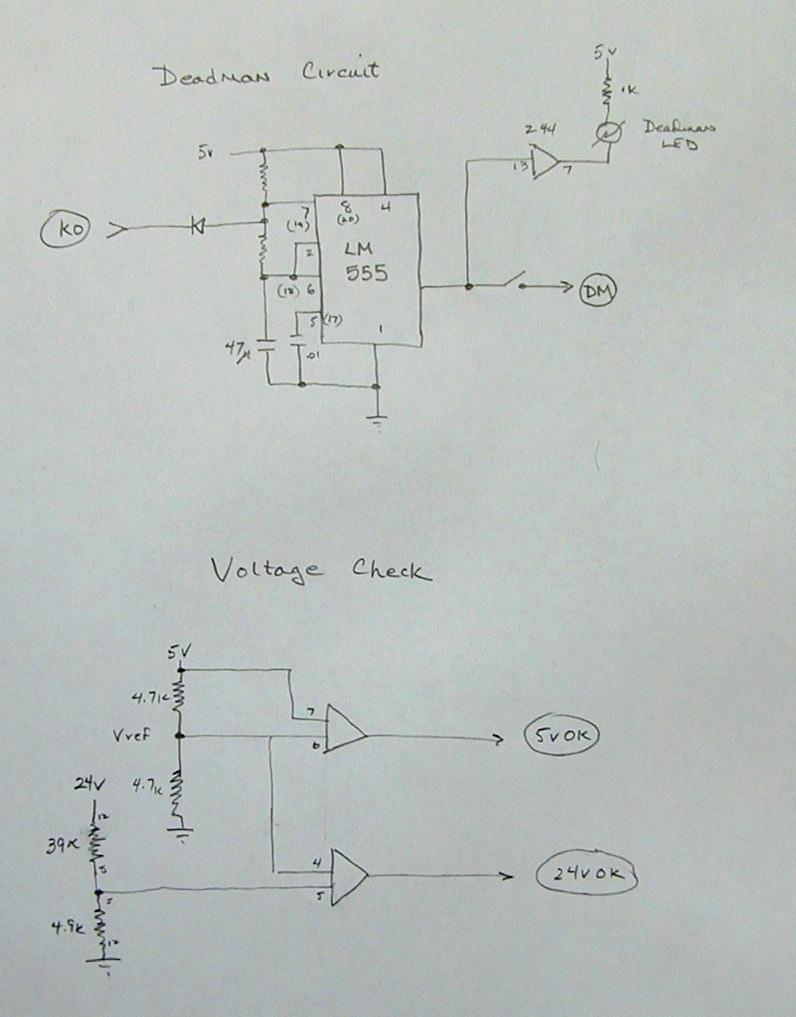 Deadman Circuit
5v
1K
244
Deadman
LED
13
7
5v
KO
7
(19)
8
(20)
4
2
LM
555
(18) 6
5 (17)
1
47µ
.01
DM
Voltage Check
5V
4.7K
7
Vref
6
5V OK
24V
4.7K
12
39K
5
4
24V OK
5
5
4.9K
12